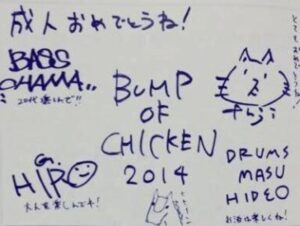 成人おめでとうね！
BASS
CHAMA..
20代楽しんで！！
BUMP
OF
CHICKEN
2014
G.
HIRO
大人を楽しんでネ！
DRUMS
MASU
HIDEO
お酒は楽しくね！